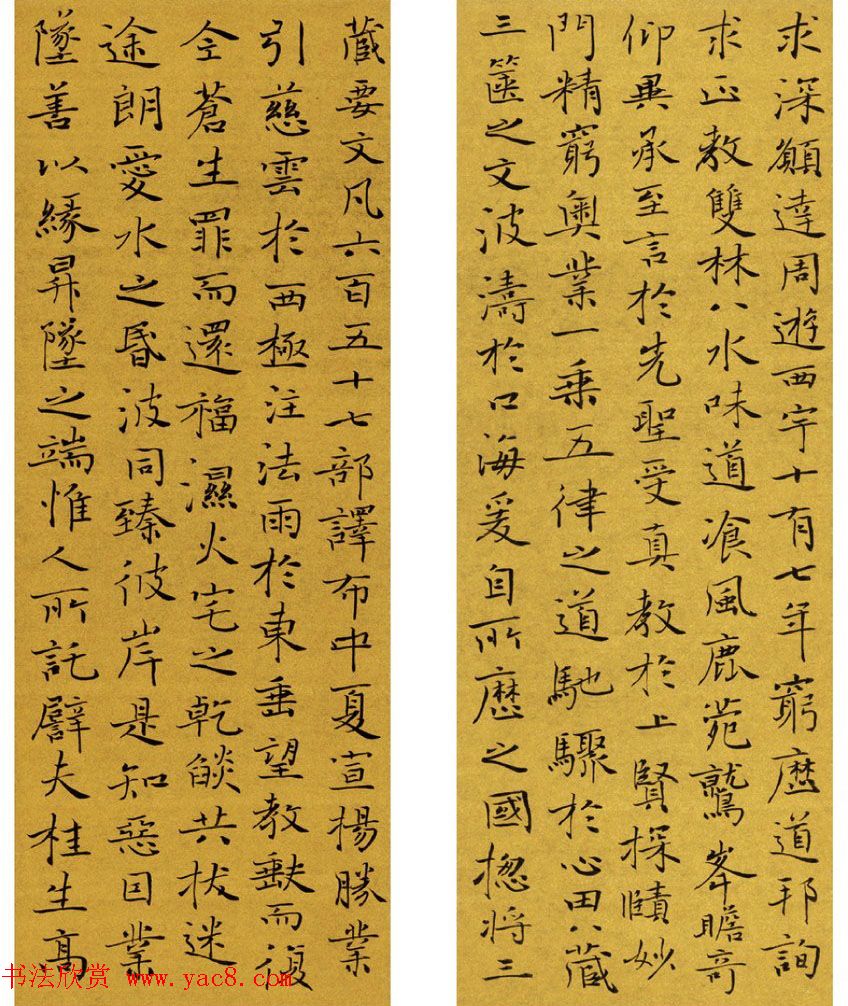 求深願達周遊西宇十有七年窮歷道邦詢
求正教雙林八水味道飡風鹿菀鷲峯瞻奇
仰異承至言於先聖受真教於上賢探賾妙
門精窮奧業一乘五律之道馳驟於心田八藏
三篋之文波濤於口海爰自所歷之國揔將三
藏要文凡六百五十七部譯布中夏宣楊勝業
引慈雲於西極注法雨於東垂望教缺而復
全蒼生罪而還福濕火宅之乾燄共拔迷
途朗愛水之昏波同臻彼岸是知惡因業
墜善以緣昇昇墜之端惟人所託譬夫桂生高
书法欣赏 www.yac8.com